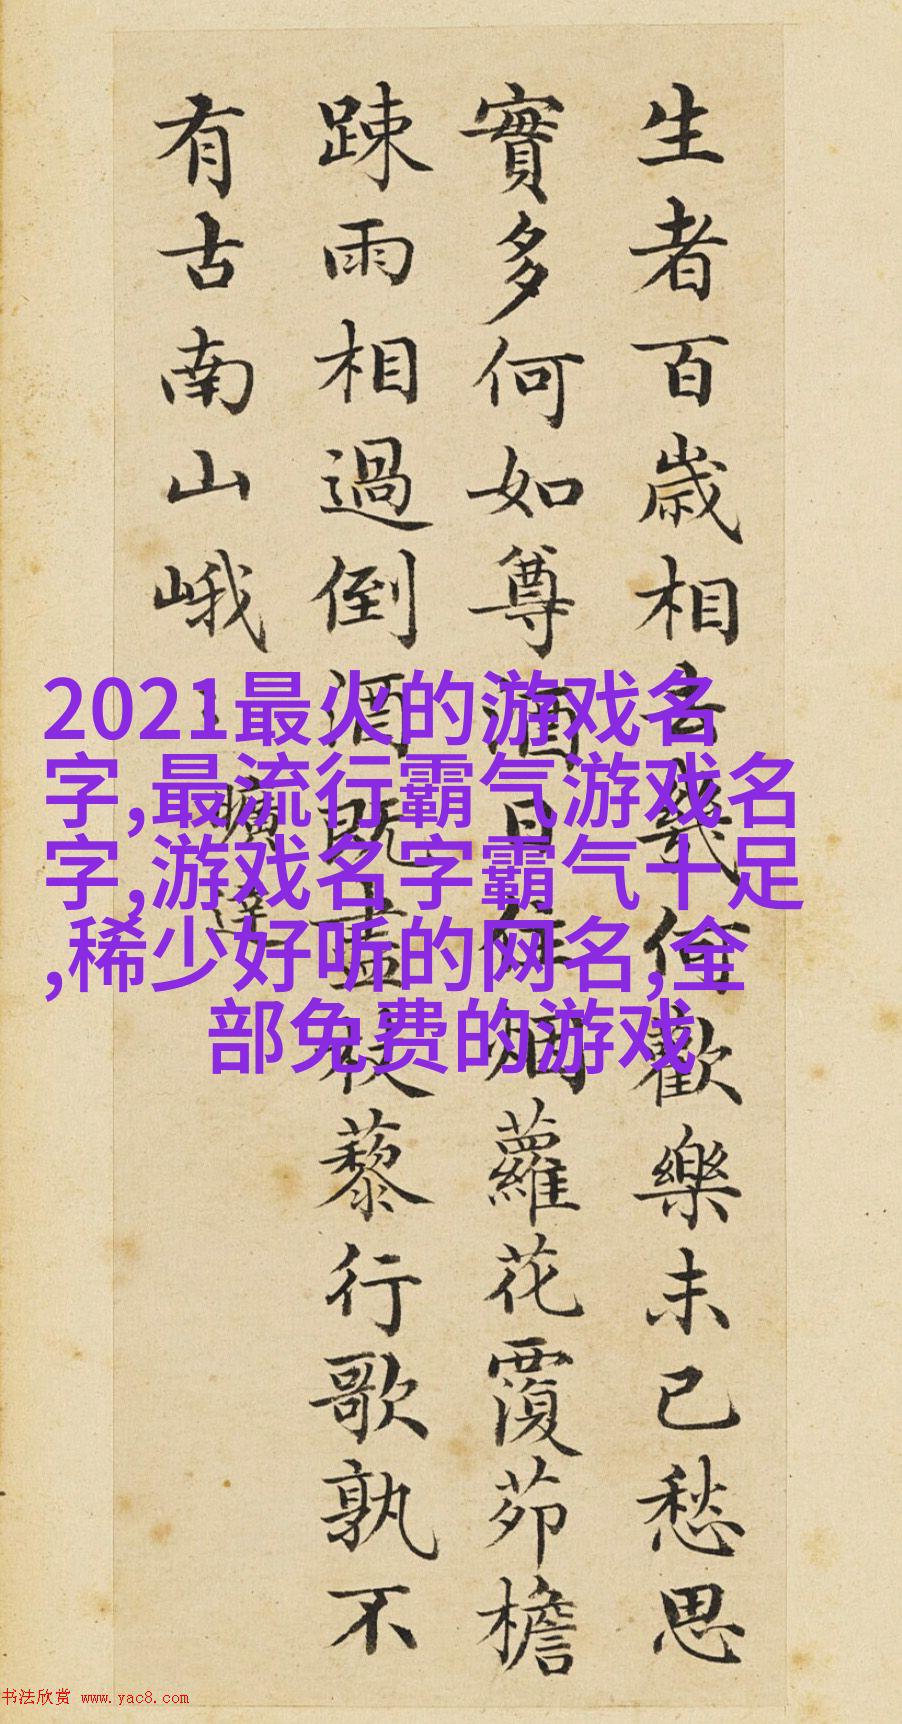 生者百歲相去幾何歡樂未已愁思
實多何如尊酒日往烟蘿花覆茆檐
踈雨相過倒酒既盡杖藜行歌孰不
有古南山峨〻
曠達
2021最火的游戏名
字,最流行霸气游戏名
字,游戏名字霸气十足
,稀少好听的网名,全
部免费的游戏
书法欣赏 www.yac8.com